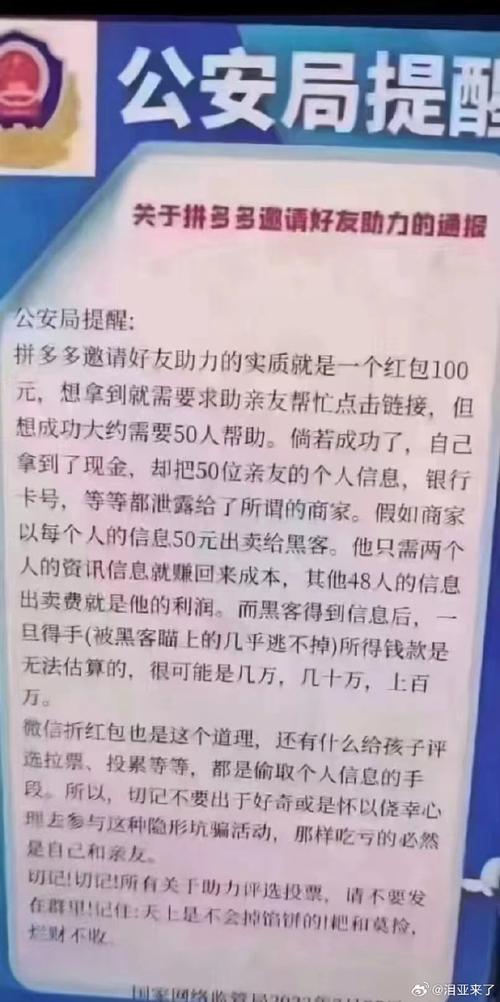 公安局提醒
关于拼多多邀请好友助力的通报
公安局提醒:
拼多多邀请好友助力的实质就是一个红包100
元，想拿到就需要求助亲友帮忙点击链接，但
想成功大约需要50人帮助。倘若成功了，自己
拿到了现金，却把50位亲友的个人信息，银行
卡号，等等都泄露给了所谓的商家。假如商家
以每个人的信息50元出卖给黑客。他只需两个
人的资讯信息就赚回来成本，其他48人的信息
出卖费就是他的利润。而黑客得到信息后，一
旦得手(被黑客瞄上的几乎逃不掉)所得钱款是
无法估算的，很可能是几万，几十万，上百
万。
微信折红包也是这个道理，还有什么给孩子评
选拉票、投累等等，都是偷取个人信息的手
段。所以，切记不要出于好奇或是怀以侥幸心
理去参与这种隐形坑骗活动，那样吃亏的必然
是自己和亲友。
切记!切记!所有关于助力评选投票，请不要发
在群里!记住:天上是不会掉馅饼的!耙和莫捡，
烂财不收.
国家网络监管局
@泪亚来了